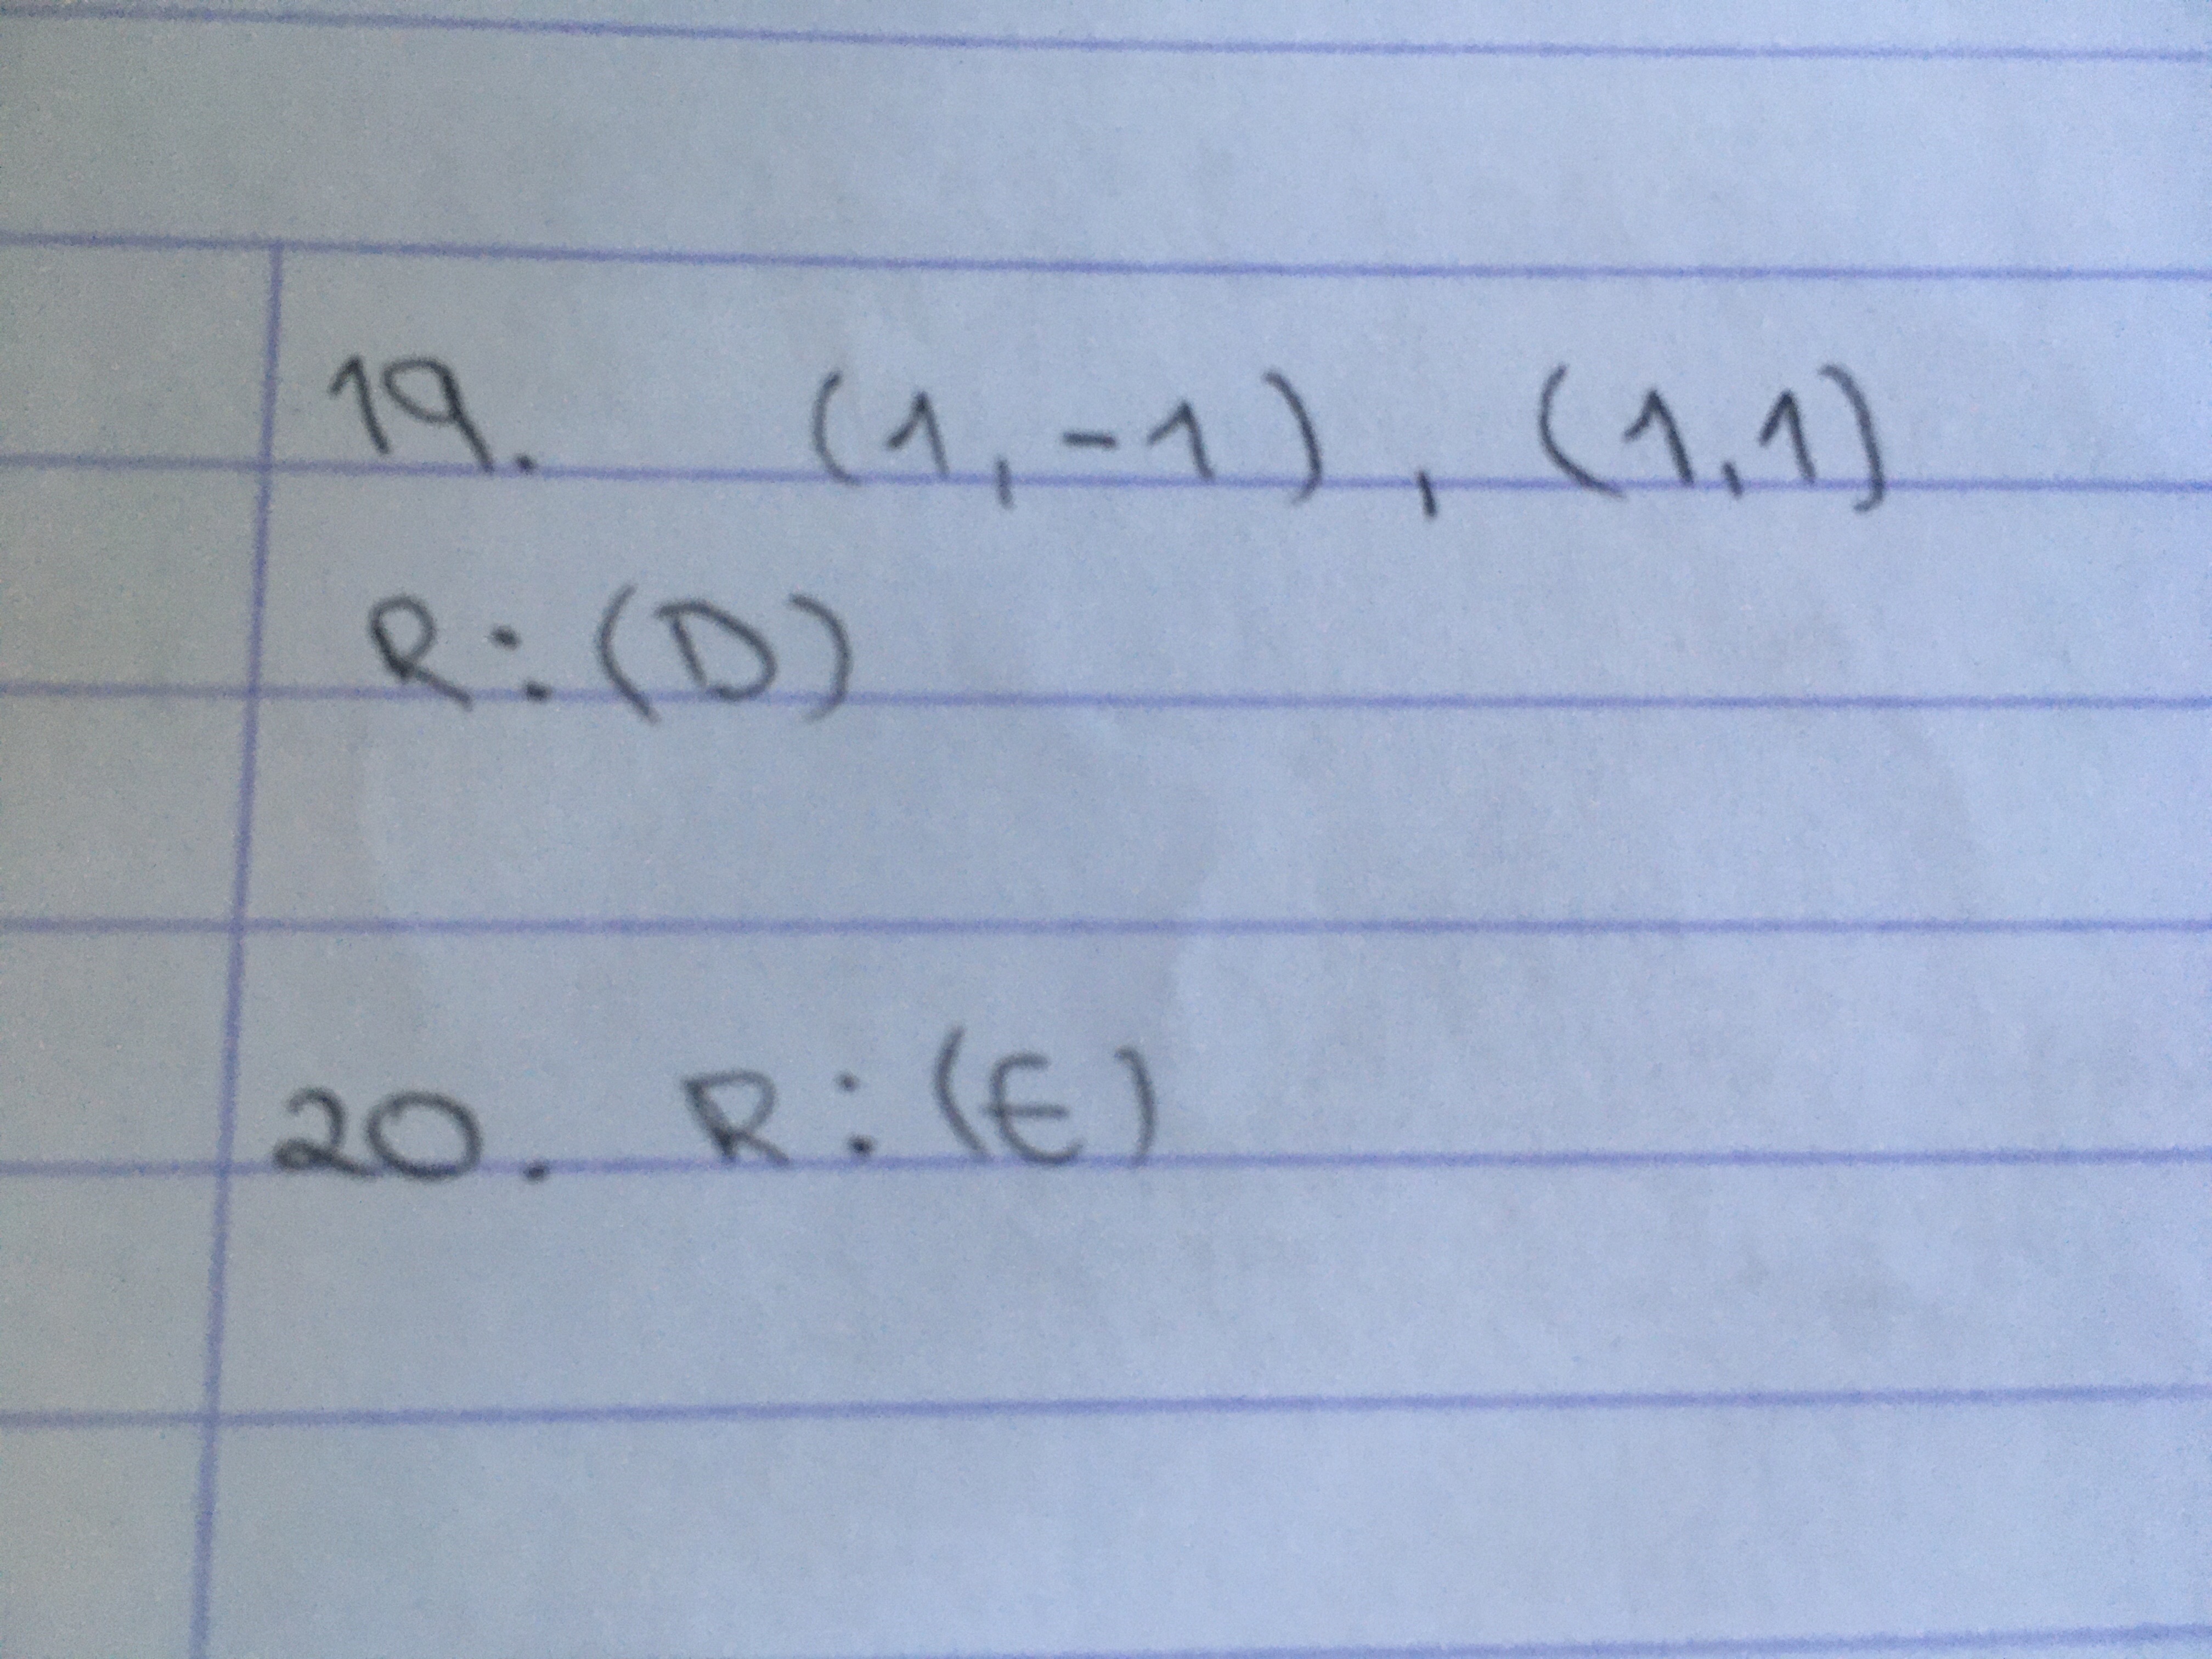 19. (1,-1), (1,1)
R:(D)
20. R:(E)